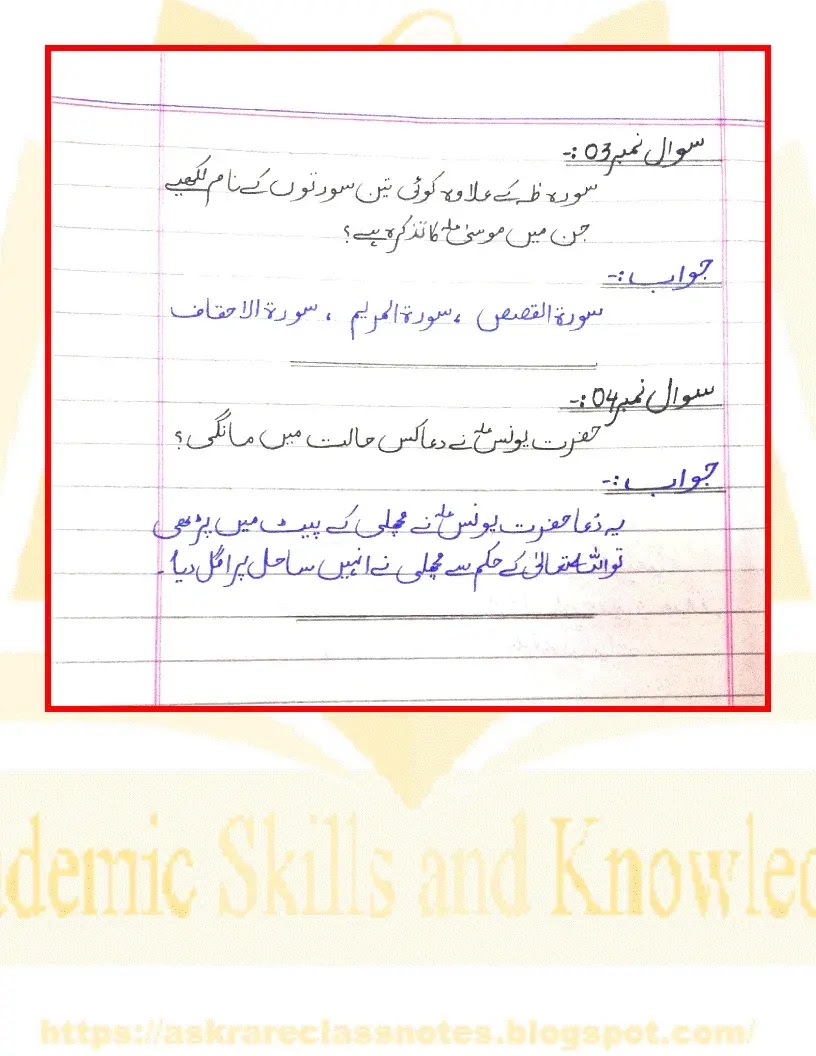 سوال نمبر 03 :-
سورہ طٰہٰ کے علاوہ کوئی تین سورتوں کے نام لکھیے
جن میں موسیٰؑ کا تذکرہ ہے؟
جواب :-
سورۃ القصص ، سورۃ المریم ، سورۃ الاحقاف
سوال نمبر 04 :-
حضرت یونسؑ نے دعا کس حالت میں مانگی؟
جواب :-
یہ دُعا حضرت یونسؑ نے مچھلی کے پیٹ میں پڑھی
تو اللہ تعالیٰ کے حکم سے مچھلی نے انہیں ساحل پر اگل دیا۔
ademic Skills and Knowled
https://askrareclassnotes.blogspot.com/